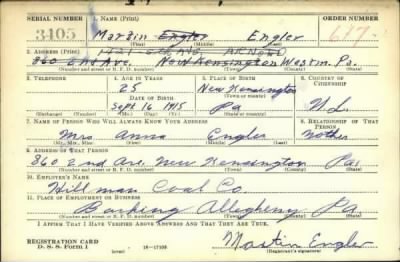 SERIAL NUMBER 1. NAME (Print) ORDER NUMBER
3405 Martin Engler Engler 617
(First) (Middle) (Last)
2. ADDRESS (Print) 1421 5th AVE. ARNOLD
860 2nd Ave. New Kensington Westm. Pa.
(Number and street or R. F. D. number) (Town) (County) (State)
3. TELEPHONE 4. AGE IN YEARS 5. PLACE OF BIRTH 6. COUNTRY OF CITIZENSHIP
25 New Kensington
DATE OF BIRTH (Town or county)
Sept 16 1915 Pa U.S.
(Exchange) (Number) (Mo.) (Day) (Yr.) (State or country)
7. NAME OF PERSON WHO WILL ALWAYS KNOW YOUR ADDRESS 8. RELATIONSHIP OF THAT PERSON
Mrs Anna Engler Mother
(Mr., Mrs., Miss) (First) (Middle) (Last)
9. ADDRESS OF THAT PERSON
860 2nd Ave. New Kensington Pa.
(Number and street or R. F. D. number) (Town) (County) (State)
10. EMPLOYER'S NAME
Hillman Coal Co.
11. PLACE OF EMPLOYMENT OR BUSINESS
Barking Allegheny Pa
(Number and street or R. F. D. number) (Town) (County) (State)
I AFFIRM THAT I HAVE VERIFIED ABOVE ANSWERS AND THAT THEY ARE TRUE.
REGISTRATION CARD
D. S. S. Form 1 (over) 16—17105 Martin Engler
(Registrant's signature)